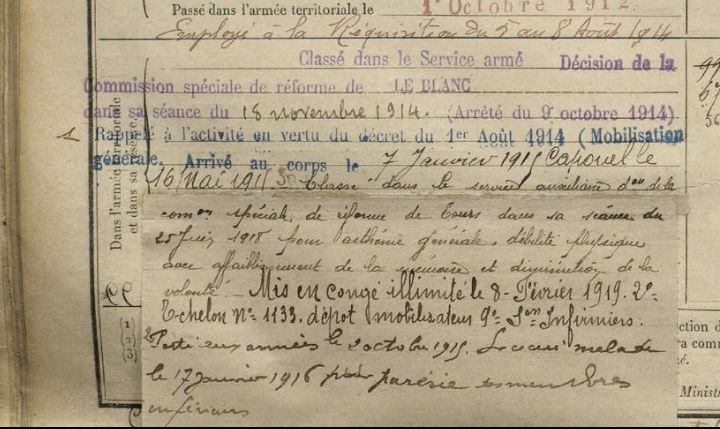 Passé dans l'armée territoriale le 1er Octobre 1912.
Employé à la Réquisition du 5 au 8 Août 1914
Classé dans le Service armé Décision de la
Commission spéciale de réforme de LE BLANC
dans sa séance du 18 novembre 1914. (Arrêté du 9 octobre 1914)
Rappelé à l'activité en vertu du décret du 1er Août 1914 (Mobilisation
générale. Arrivé au corps le 7 Janvier 1915
16 Mai 1915 Classé dans le service auxiliaire don de la
comon spéciale de réforme de Tours dans sa séance du
25 1918 pour asthénie générale, débilité physique
avec affaiblissement de la mémoire et diminution de la
volonté. Mis en congé illimité le 8 Février 1919. 2e
Echelon No 1133. dépôt mobilisateur 9e Son Infirmiers.
Parti aux armées le 2 octobre 1915. malade
le 17 janvier 1916 pour parésie des membres
inférieurs
Dans l'armée territoriale
et dans sa réserve.